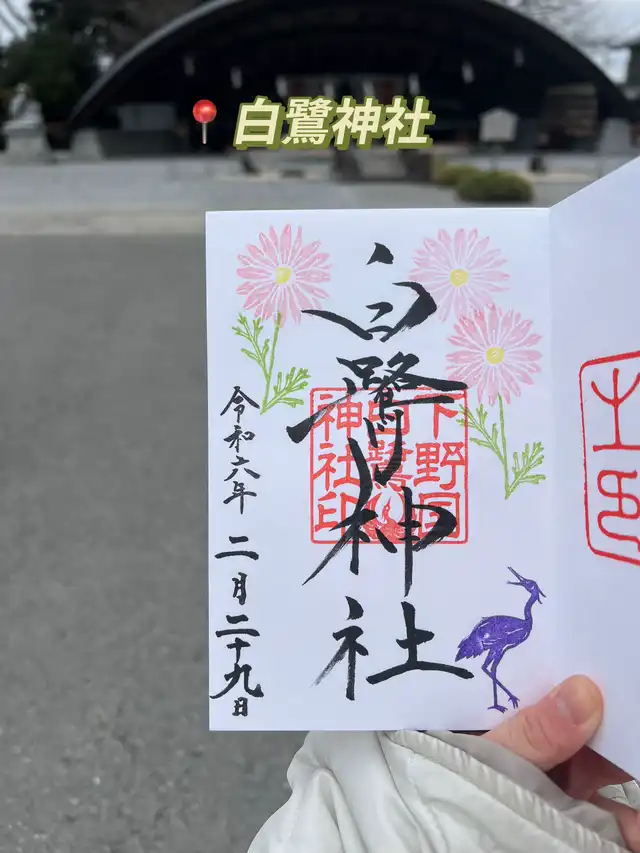 白鷺神社
白鷺神社
下野国
白鷺
神社印
令和六年 二月二十九日